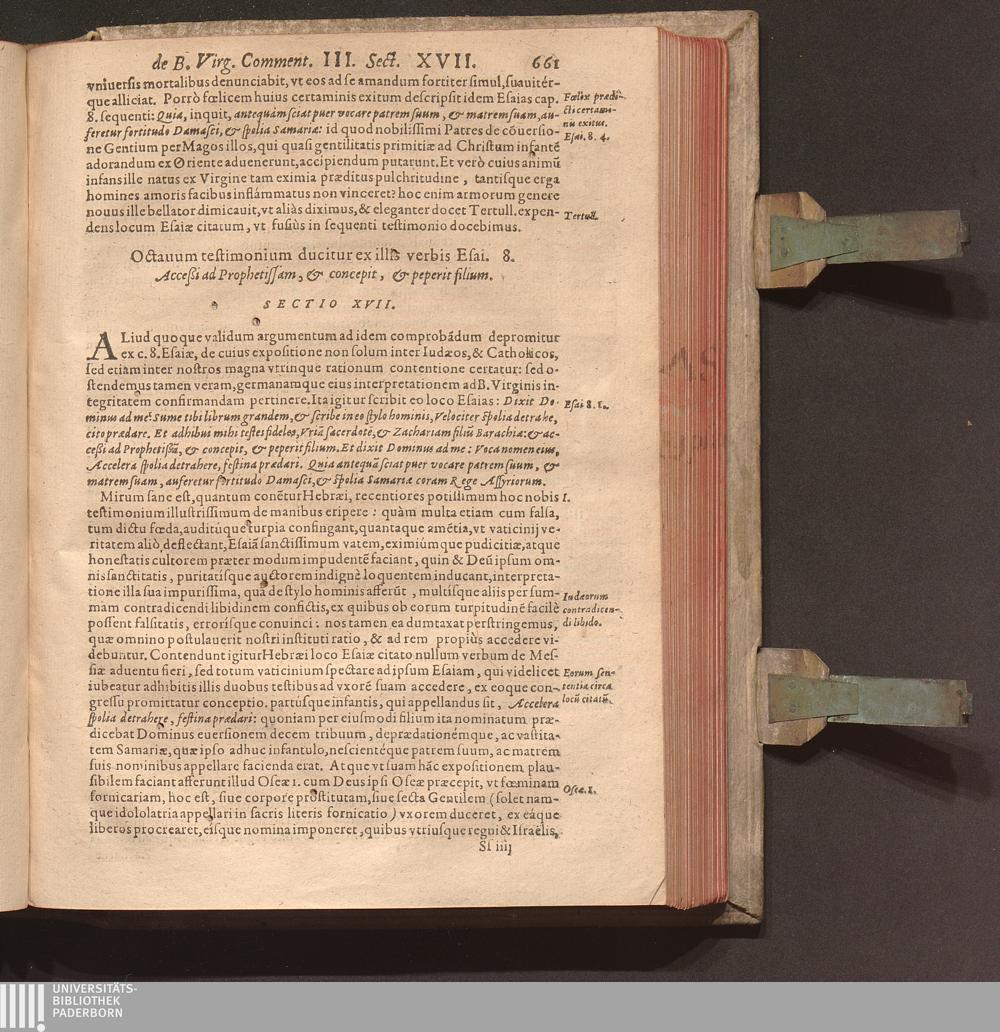 de B. Virg. Comment. III. Sect. XVII. 661
vniuersis mortalibus denunciabit, vt eos ad se amandum fortiter simul, suauitér-
que alliciat. Porrò fœlicem huius certaminis exitum descripsit idem Esaias cap.
8. sequenti: Quia, inquit, antequàm sciat puer vocare patrem suum, & matrem suam, au-
feretur fortitudo Damasci, & spolia Samariæ: id quod nobilissimi Patres de cōuersio-
ne Gentium per Magos illos, qui quasi gentilitatis primitiæ ad Christum infantē
adorandum ex Oriente aduenerunt, accipiendum putarunt. Et verò cuius animū
infans ille natus ex Virgine tam eximia præditus pulchritudine, tantisque erga
homines amoris facibus inflámmatus non vinceret? hoc enim armorum genere
nouus ille bellator dimicauit, vt aliàs diximus, & eleganter docet Tertull. expen-
dens locum Esaiæ citatum, vt fusiùs in sequenti testimonio docebimus.
Fœlix prædi-
cti certami-
nis exitus.
Esai. 8. 4.
Tertull.
Octauum testimonium ducitur ex illis verbis Esai. 8.
Accessi ad Prophetissam, & concepit, & peperit filium.
SECTIO XVII.
ALiud quoque validum argumentum ad idem comprobādum depromitur
ex c. 8. Esaiæ, de cuius expositione non solum inter Iudæos, & Catholicos,
sed etiam inter nostros magna vtrinque rationum contentione certatur: sed o-
stendemus tamen veram, germanamque eius interpretationem ad B. Virginis in-
tegritatem confirmandam pertinere. Ita igitur scribit eo loco Esaias: Dixit Do-
minus ad me: Sume tibi librum grandem, & scribe in eo stylo hominis, Velociter spolia detrahe,
cito prædare. Et adhibui mihi testes fideles, Vriā sacerdotē, & Zachariam filiū Barachiæ: & ac-
cessi ad Prophetissā, & concepit, & peperit filium. Et dixit Dominus ad me: Voca nomen eius,
Accelera spolia detrahere, festina prædari. Quia antequā sciat puer vocare patrem suum, &
matrem suam, auferetur fortitudo Damasci, & spolia Samariæ coram Rege Assyriorum.
Esai 8. 1.
Mirum sane est, quantum conētur Hebræi, recentiores potissimum hoc nobis
testimonium illustrissimum de manibus eripere: quàm multa etiam cum falsa,
tum dictu fœda, auditúque turpia confingant, quantaque amētia, vt vaticinij ve-
ritatem aliò deflectant, Esaiā sanctissimum vatem, eximiúmque pudicitiæ, atque
honestatis cultorem præter modum impudentē faciant, quin & Deū ipsum om-
nis sanctitatis, puritatisque auctorem indignè loquentem inducant, interpreta-
tione illa sua impurissima, quā de stylo hominis afferūt, multisque aliis per sum-
mam contradicendi libidinem confictis, ex quibus ob eorum turpitudinē facilè
possent falsitatis, errorisque conuinci: nos tamen ea dumtaxat perstringemus,
quæ omnino postulauerit nostri instituti ratio, & ad rem propiùs accedere vi-
debuntur. Contendunt igitur Hebræi loco Esaiæ citato nullum verbum de Mes-
siæ aduentu fieri, sed totum vaticinium spectare ad ipsum Esaiam, qui videlicet
iubeatur adhibitis illis duobus testibus ad vxorē suam accedere, ex eoque con-
gressu promittatur conceptio, partúsque infantis, qui appellandus sit, Accelera
spolia detrahere, festina prædari: quoniam per eiusmodi filium ita nominatum præ-
dicebat Dominus euersionem decem tribuum, deprædationémque, ac vastita-
tem Samariæ, quæ ipso adhuc infantulo, nescientéque patrem suum, ac matrem
suis nominibus appellare facienda erat. Atque vt suam hāc expositionem plau-
sibilem faciant afferunt illud Oseæ 1. cum Deus ipsi Oseæ præcepit, vt fœminam
fornicariam, hoc est, siue corpore prostitutam, siue secta Gentilem (solet nam-
que idololatria appellari in sacris literis fornicatio) vxorem duceret, ex eáque
liberos procrearet, eísque nomina imponeret, quibus vtriusque regni & Israëlis,
I.
Iudæorum
contradicen-
di libido.
Eorum sen-
tentia circa
locū citatū.
Oseæ. 1.
Sſ iiij
UNIVERSITÄTS-
BIBLIOTHEK
PADERBORN